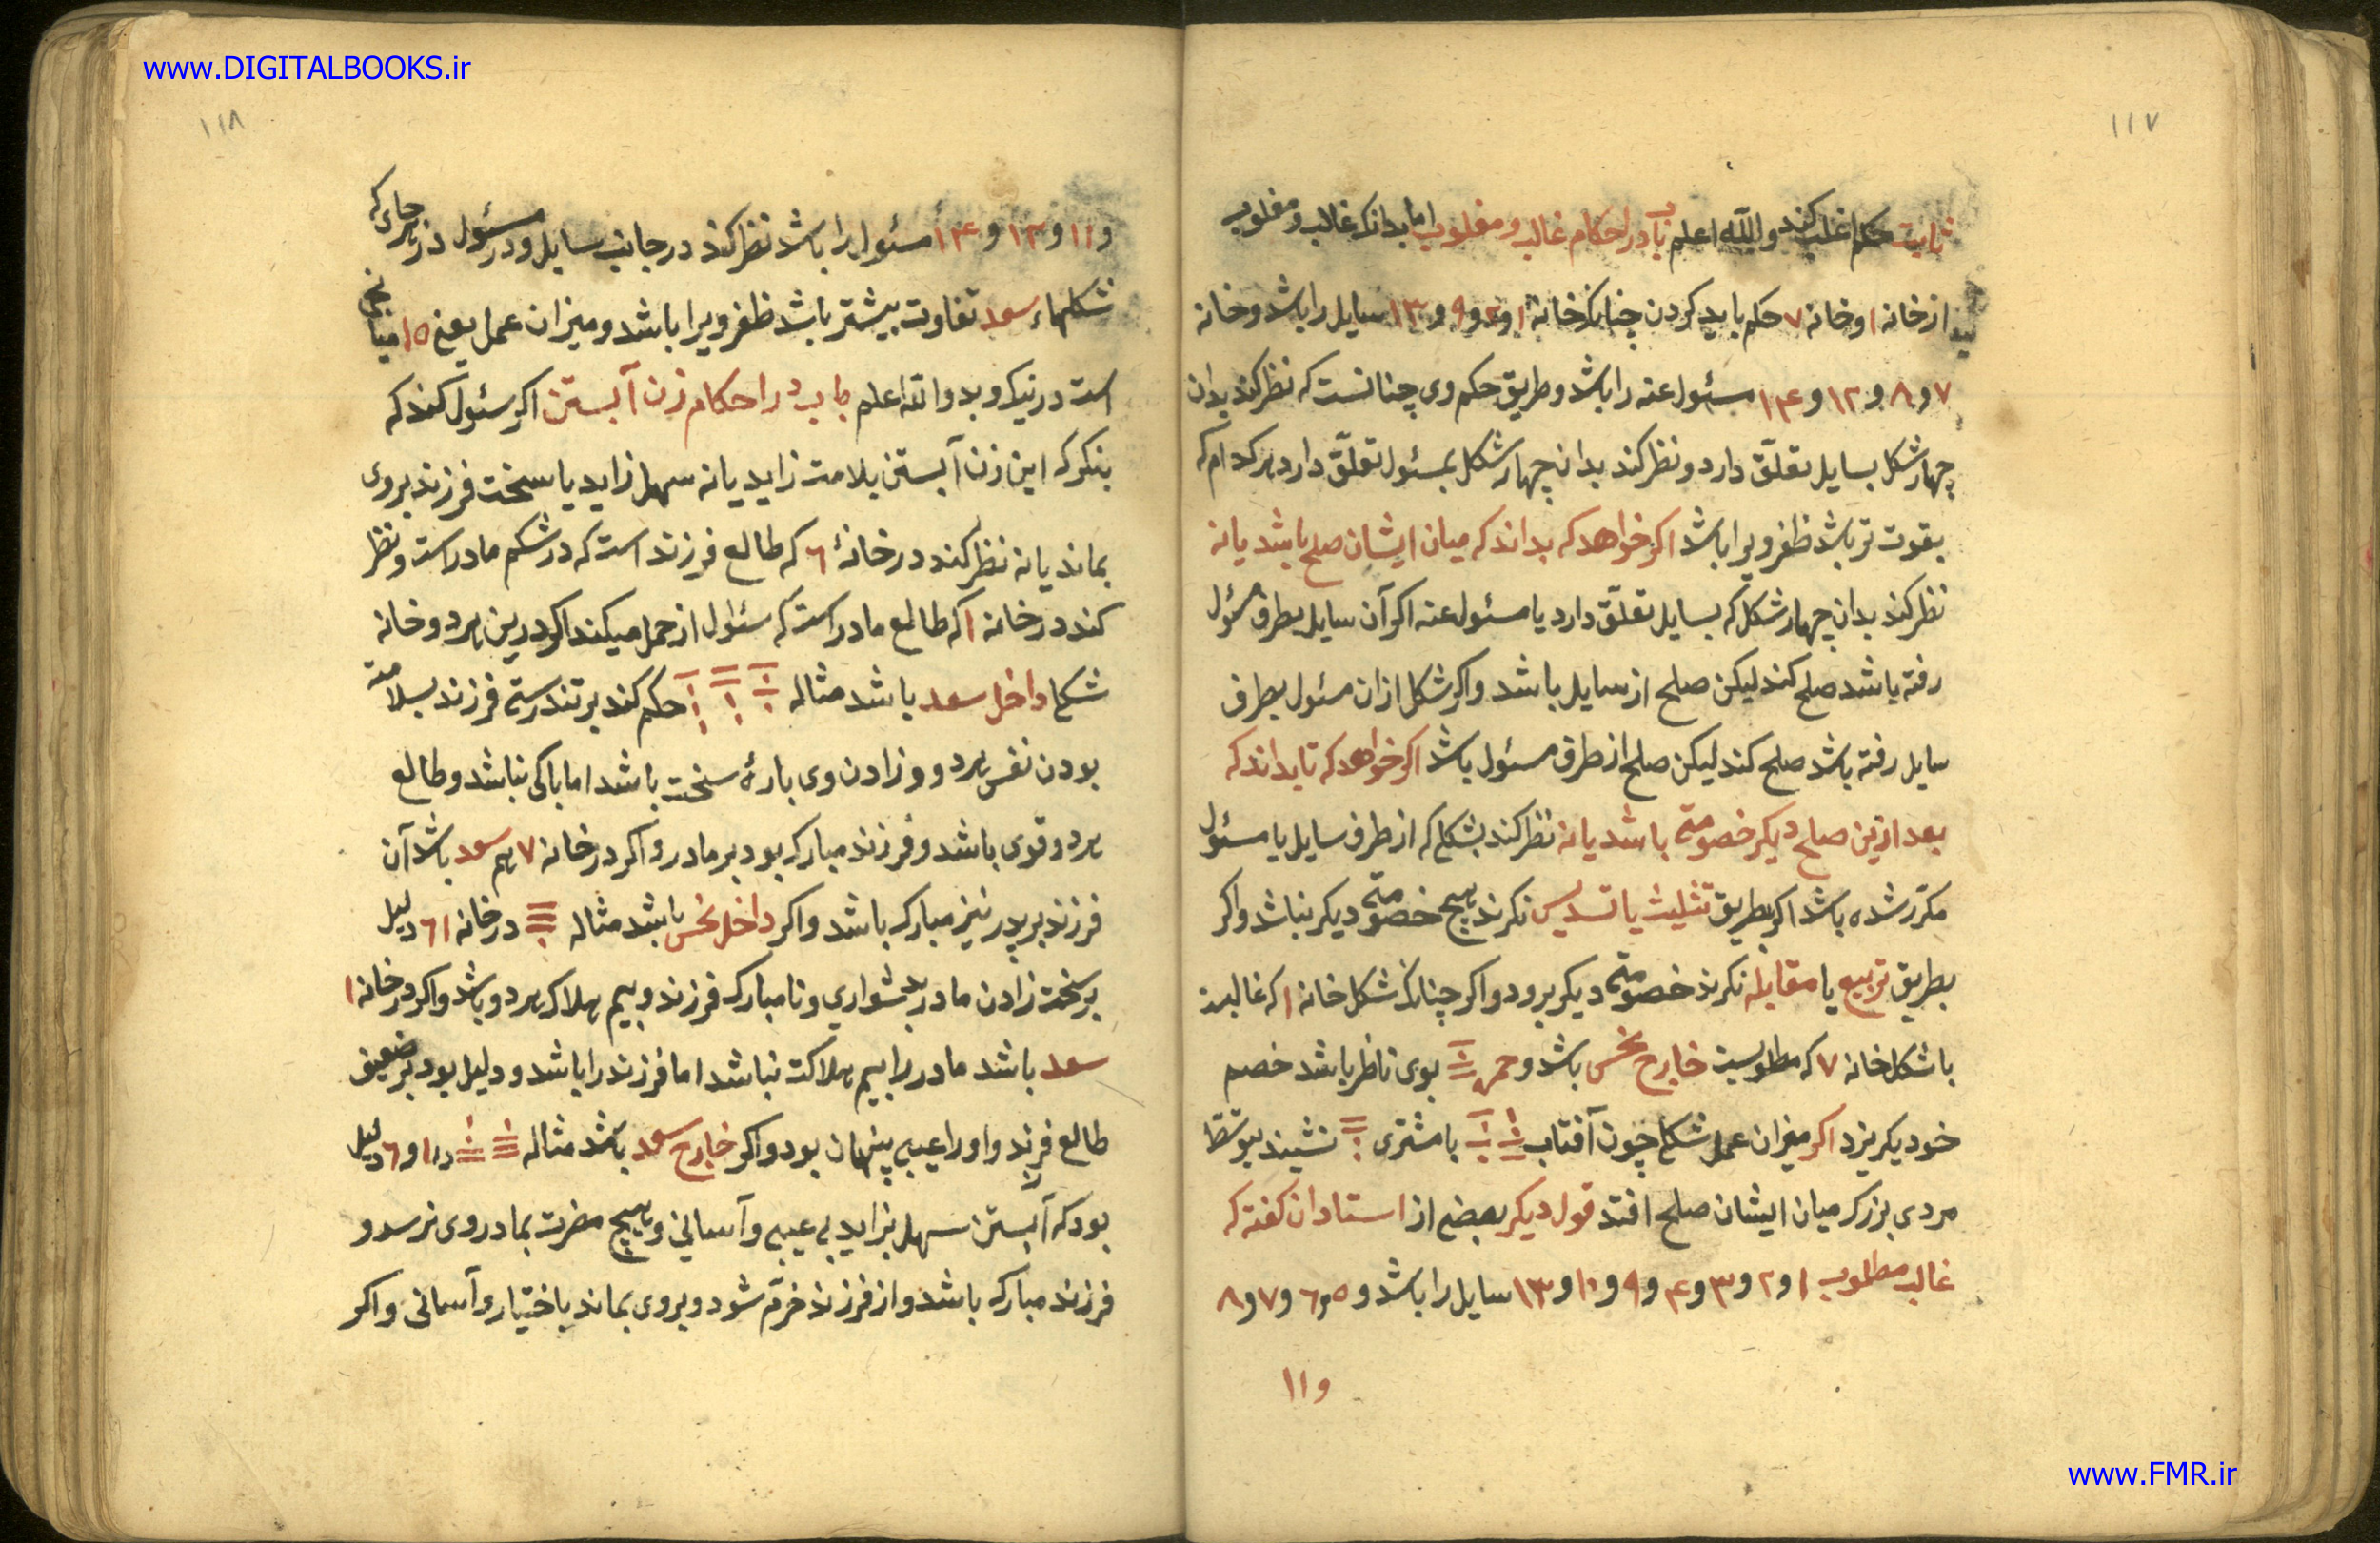 www.DIGITALBOOKS.ir
۱۱۷
ثابت حکم اغلب کند والله اعلم باب در احکام غالب و مغلوب اما بدانکه غالب و مغلوب
از خانه ۱ و خانه ۷ حکم باید کردن چنانکه خانه ۱ و ۲ و ۹ و ۱۳ سایل را باشد و خانه
۷ و ۸ و ۱۲ و ۱۴ مسئول عنه را باشد و طریق حکم وی چنانست که نظر کند بدان
چهار شکل بسایل تعلّق دارد و نظر کند بدان چهار شکل بمسئول تعلّق دارد هر کدام که
بقوت تر باشد ظفر ویرا باشد اکر خواهد که بداند که میان ایشان صلح باشد یا نه
نظر کند بدان چهار شکل که بسایل تعلّق دارد یا مسئول عنه اکر آن سایل بطرف مسؤل
رفته باشد صلح کند لیکن صلح از سایل باشد و اکر شکل از ان مسئول بطرف
سایل رفته باشد صلح کند لیکن صلح از طرف مسئول باشد اکر خواهد که تا بداند که
بعد ازین صلح دیکر خصومتی باشد یا نه نظر کند بشکلی که از طرف سایل یا مسئول
مکرّر شده باشد اکر بطریق تثلیث یا تسدیس نکرند هیچ خصومتی دیکر نباشد و اکر
بطریق تربیع یا مقابله نکرند خصومتی دیکر برود و اکر چنانکه شکل خانه ۱ که غالبست
با شکل خانه ۷ که مطلوبست خارج نحس باشد و حمره بوی ناظر باشد خصم
خود بکریزد اکر میزان عمل شکلی چون آفتاب با مشتری نشیند بتوسّط
مردی بزرک میان ایشان صلح افتد قول دیکر بعضی از استادان کفته که
غالب مطلوب ۱ و ۲ و ۳ و ۴ و ۹ و ۱۰ و ۱۳ سایل را باشد و ۵ و ۶ و ۷ و ۸
و ۱۱
۱۱۸
و ۱۱ و ۱۲ و ۱۴ مسئول را باشد نظر کند در جانب سایل و در مسئول در هر جای که
شکلهاء سعد تفاوت بیشتر باشد ظفر ویرا باشد و میزان عمل یعنی ۱۵ میانجی
است در نیک و بد والله اعلم باب در احکام زن آبستن اکر سئول کند که
بنکر که این زن آبستن بلامت زاید یا نه سهل زاید یا سخت فرزند بروی
بماند یا نه نظر کند در خانهٔ ۶ که طالع فرزند است که در شکم مادر است و نظر
کند در خانه ۱ که طالع مادر است که سئوال از حمل میکند اکر درین هر دو خانه
شکل داخل سعد باشد مثاله حکم کند بر تندرستی فرزند بسلامتی
بودن نفس هر دو و زادن وی بارهٔ سخت باشد اما باکی نباشد و طالع
هر دو قوی باشد و فرزند مبارک بود بر مادر و اکر در خانه ۷ هم سعد باشد آن
فرزند بر پدر نیز مبارک باشد و اکر داخل نحس باشد مثاله در خانه ۱ ۶ دلیل
بر سخت زادن مادر بدشواری و نا مبارک فرزند و بیم هلاک هر دو باشد و اکر در خانه ۱
سعد باشد مادر را بیم هلاکت نباشد اما فرزند را باشد و دلیل بود بر ضعیفی
طالع فرزند و او را عیبی پنهان بود و اکر خارج سعد باشد مثاله در ۱ و ۶ دلیل
بود که آبستن سهل بزاید بی عیبی و آسانی و هیچ مضرت بمادر وی نرسد و
فرزند مبارک باشد و از فرزند خرّم شود و بروی بماند باختیار و آسانی و اکر
www.FMR.ir